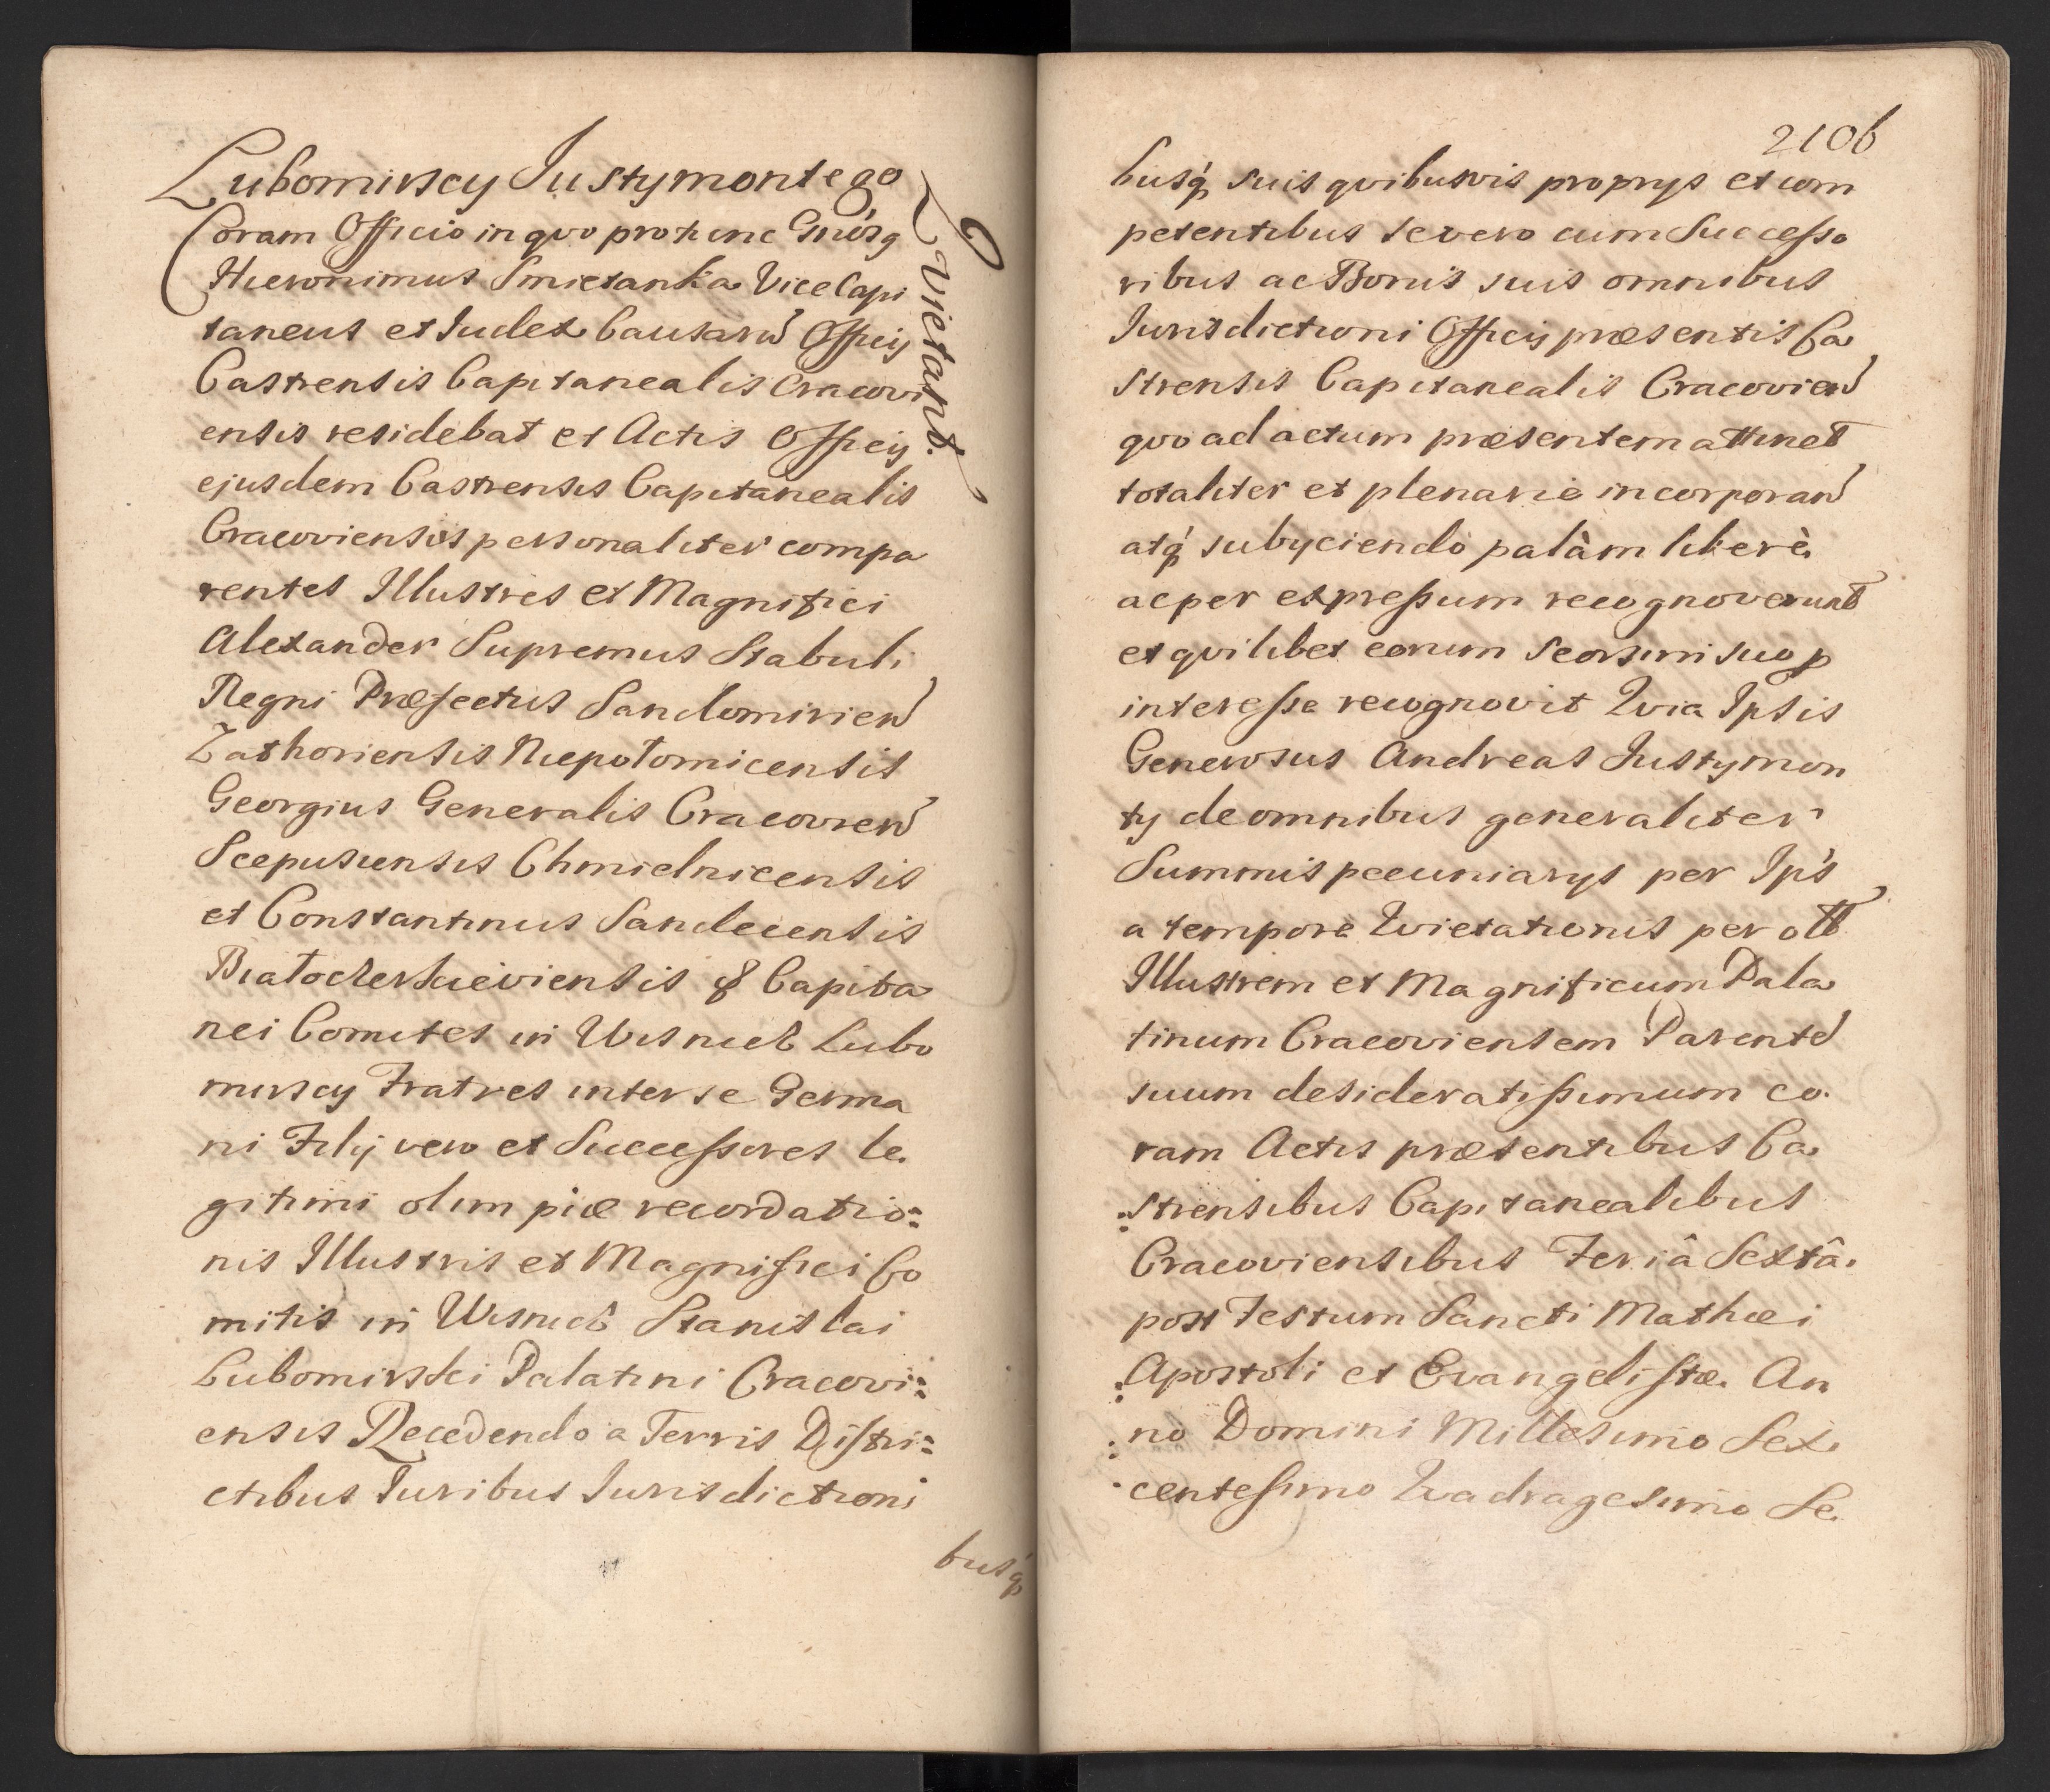 Lubomirscy Justymontego
Coram Officio in qvo protunc Gnỏsg
Hieronimus Smietanka Vice Capi
taneus et Iudex Causarũ Officij
Castrensis Capitanealis Cracovi
ensis residebat et Actis Officij
ejusdem Castrensis Capitanealis
Cracoviensis personaliter compa
rentes Illustres et Magnifici
Alexander Supremus Stabuli
Regni Præfectus Sandomirien̄
Zathoriensis Niepołomicensis
Georgius Generalis Cracovien̄
Scepusiensis Chmielnicensis
et Constantinus Sandecensis
Białocerkieviensis & Capita
nei Comites in Wisnicz Lubo
mirscy Fratres inter se Germa
ni Filij vero et Successores le
gitimi olim piæ recordatio:
nis Illustris et Magnifici Co
mitis in Wisnicz Stanislai
Lubomirski Palatini Cracovi:
ensis Recedendo a Terris Distri:
ctibus Iuribus Iurisdictioni
busq́
Qvietant.
2106
busq́ suis qvibusvis proprys et com
petentibus se vero cum Successo
ribus ac Bonis suis omnibus
Iurisdictioni Officij præsentis Ca
strensis Capitanealis Cracovien̄
qvo ad actum præsentem attinet
totaliter et plenarie incorporan̄
atq́ subyciendo palàm liberè
ac per expressum recognoverunt
et qvilibet eorum seorsim suo p
interesse recognovit Qvia Ipsis
Generosus Andreas Justymon
ty de omnibus generaliter
Summis pecuniarys per Ips
a tempore Qvietationis per olt
Illustrem et Magnificum Pala
tinum Cracoviensem Parentē
suum desideratissimum co
ram Actis præsentibus Ca
:strensibus Capitanealibus
Cracoviensibus Feriâ Sextâ
post Festum Sancti Mathæi
:Apostoli et Evangelistæ An
:no Domini Millesimo Sex
centesimo Qvadragesimo Se